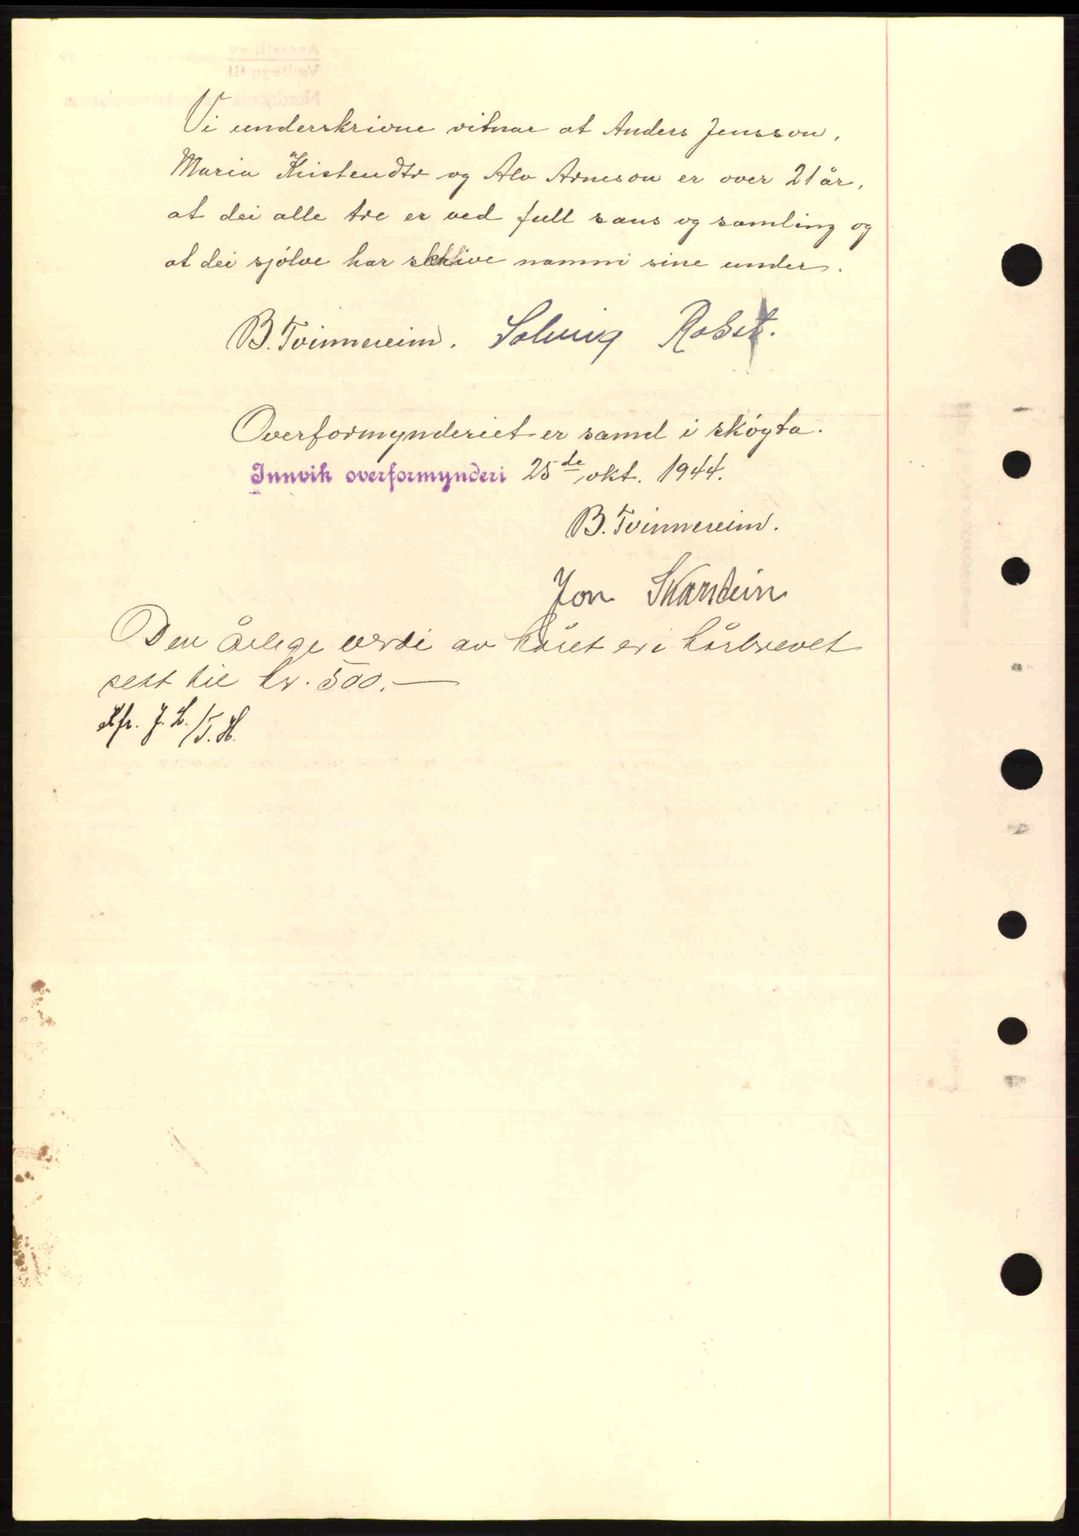 Vi underskrivne vitnar at Anders Jensson,
Maria Kristendtr og Alv Arneson er over 21 år,
at dei alle tre er ved full sans og samling og
at dei sjølve har skrive namni sine under.
B. Tvinnereim. Solveig Roset.
Overformynderiet er samd i skøyta.
Innvik overformynderi 25de okt. 1944.
B. Tvinnereim.
Jon Skarstein
Den årlege verdi av kåret er i kårbrevet
sett til kr. 500.—
Kfr. J. L. / T. H.